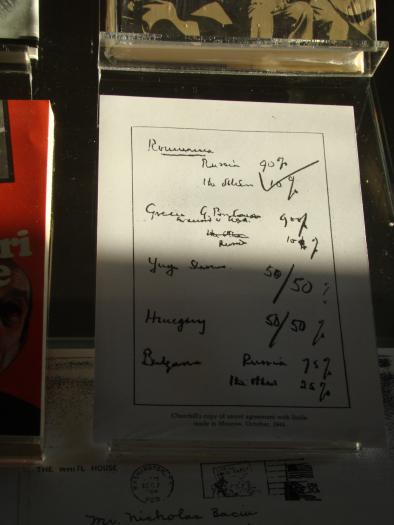 Roumania
Russia 90%
The others 10%
Greece G. Britain 90%
in accord with USA
The others
Russia 10%
Yugoslavia 50/50 %
Hungary 50/50 %
Bulgaria Russia 75%
The others 25%
Churchill's copy of secret agreement with Stalin
made in Moscow, October, 1944.
ri
e
THE WHITE HOUSE
WASHINGTON
Mr. Nicholas Baciu